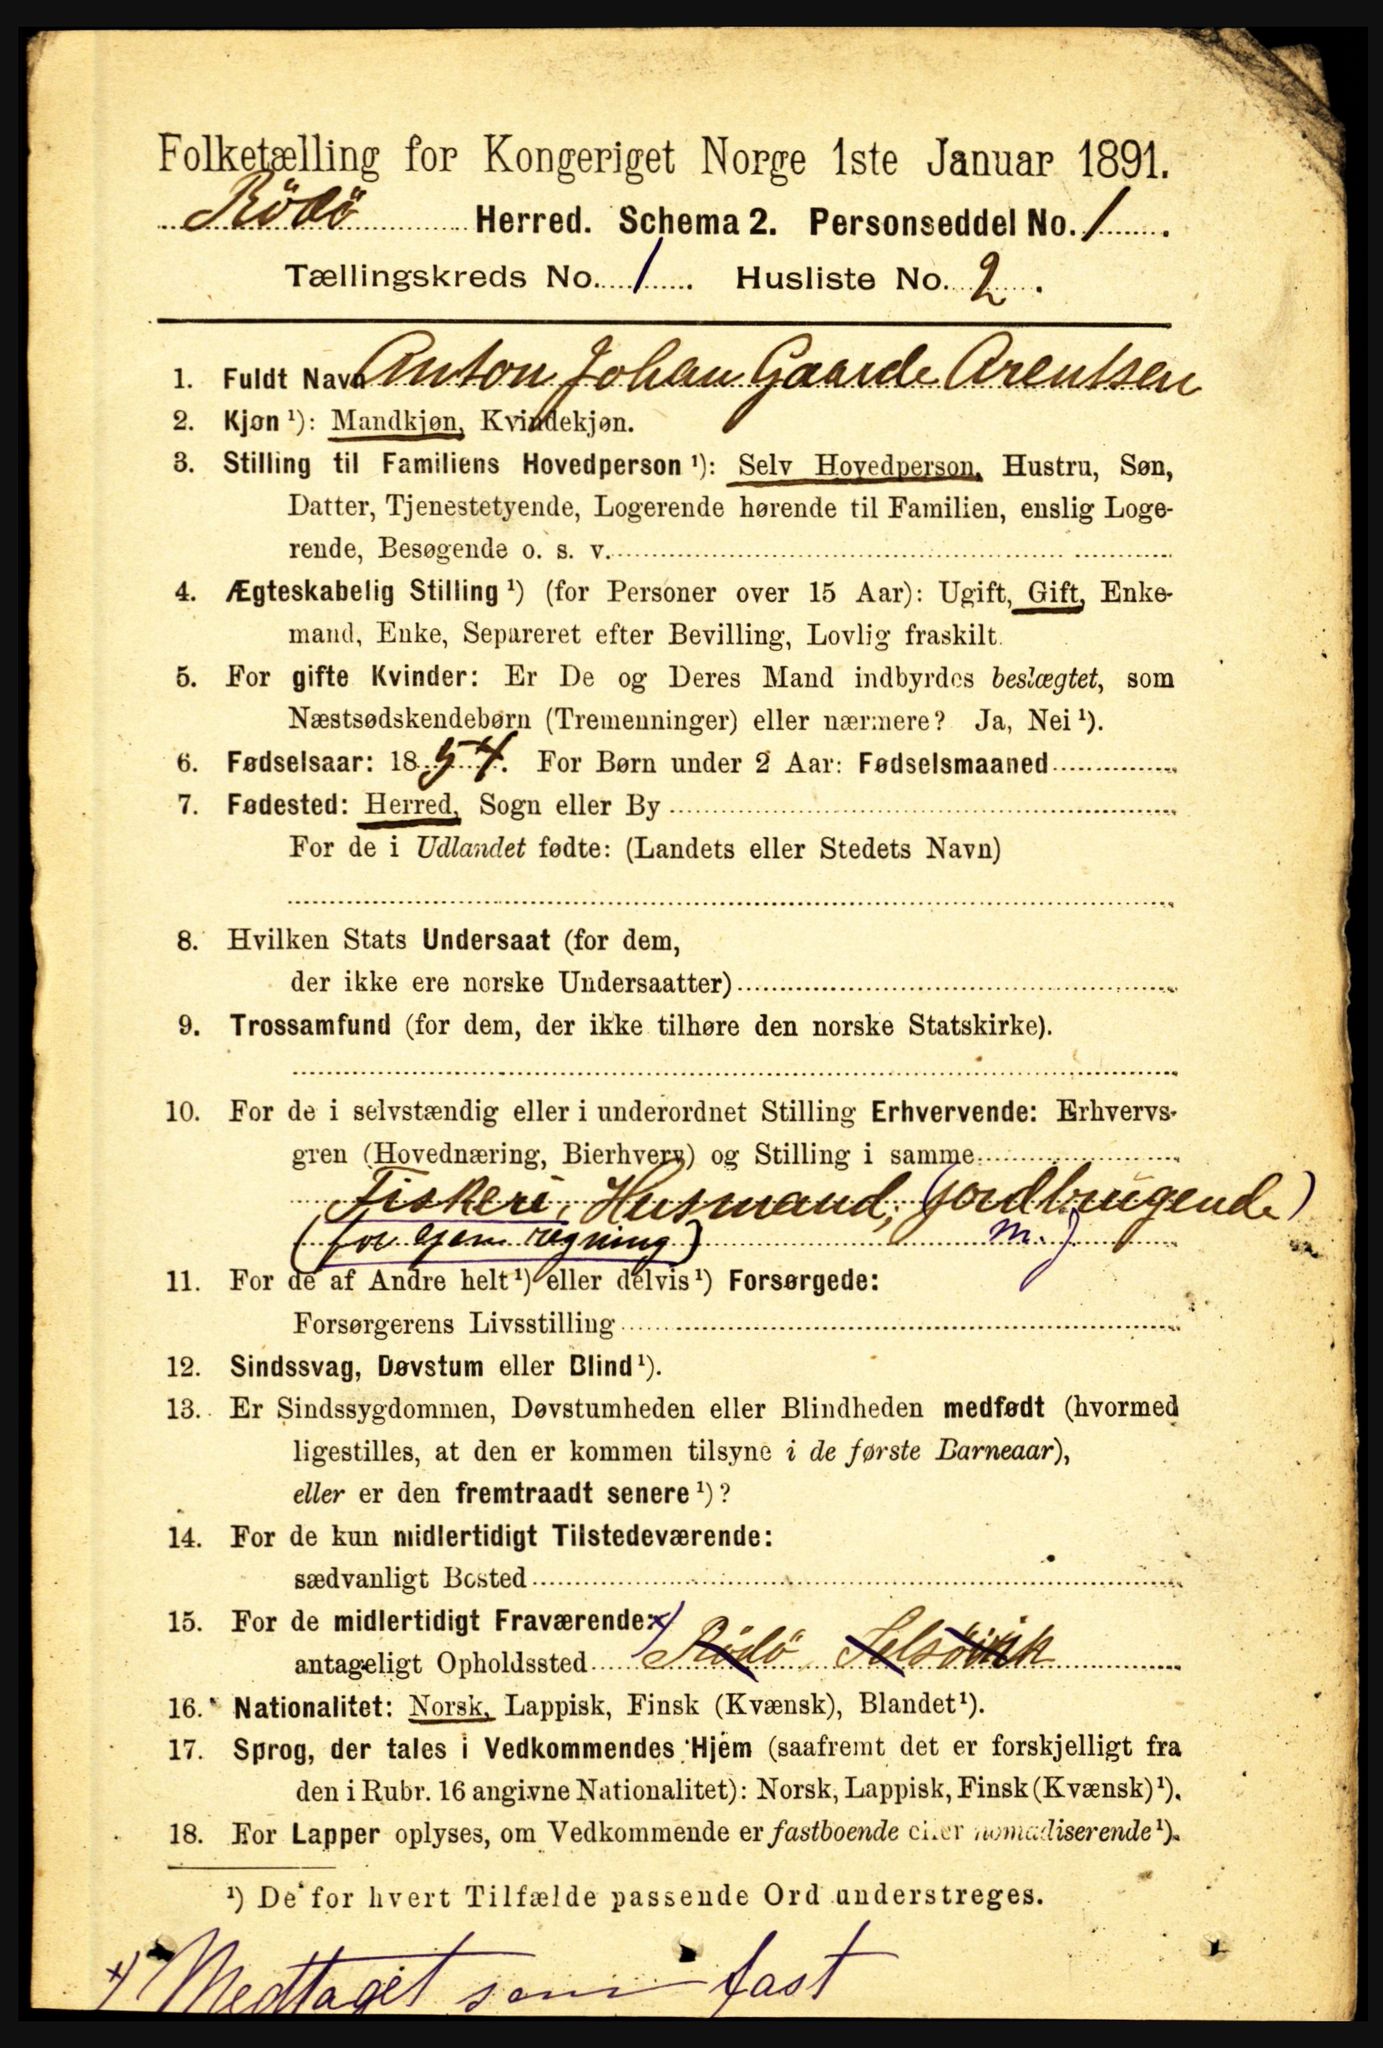 Folketælling for Kongeriget Norge 1ste Januar 1891.
Rödö Herred. Schema 2. Personseddel No. 1.
Tællingskreds No. 1. Husliste No. 2.
1. Fuldt Navn Anton Johan Gaarde Arentsen
2. Kjøn ¹): Mandkjøn, Kvindekjøn.
3. Stilling til Familiens Hovedperson ¹): Selv Hovedperson, Hustru, Søn,
Datter, Tjenestetyende, Logerende hørende til Familien, enslig Loge-
rende, Besøgende o. s. v.
4. Ægteskabelig Stilling ¹) (for Personer over 15 Aar): Ugift, Gift, Enke-
mand, Enke, Separeret efter Bevilling, Lovlig fraskilt.
5. For gifte Kvinder: Er De og Deres Mand indbyrdes beslægtet, som
Næstsødskendebørn (Tremenninger) eller nærmere? Ja, Nei ¹).
6. Fødselsaar: 1854. For Børn under 2 Aar: Fødselsmaaned
7. Fødested: Herred, Sogn eller By
For de i Udlandet fødte: (Landets eller Stedets Navn)
8. Hvilken Stats Undersaat (for dem,
der ikke ere norske Undersaatter)
9. Trossamfund (for dem, der ikke tilhøre den norske Statskirke).
10. For de i selvstændig eller i underordnet Stilling Erhvervende: Erhvervs-
gren (Hovednæring, Bierhverv) og Stilling i samme
Fiskeri, Husmand, (jordbrugende)
(for egen regning) m. J
11. For de af Andre helt ¹) eller delvis ¹) Forsørgede:
Forsørgerens Livsstilling
12. Sindssvag, Døvstum eller Blind ¹).
13. Er Sindssygdommen, Døvstumheden eller Blindheden medfødt (hvormed
ligestilles, at den er kommen tilsyne i de første Barneaar),
eller er den fremtraadt senere ¹)?
14. For de kun midlertidigt Tilstedeværende:
sædvanligt Bosted
15. For de midlertidigt Fraværende: x)
antageligt Opholdssted Rödö Selsövik
16. Nationalitet: Norsk, Lappisk, Finsk (Kvænsk), Blandet ¹).
17. Sprog, der tales i Vedkommendes Hjem (saafremt det er forskjelligt fra
den i Rubr. 16 angivne Nationalitet): Norsk, Lappisk, Finsk (Kvænsk) ¹).
18. For Lapper oplyses, om Vedkommende er fastboende eller nomadiserende ¹).
¹) De for hvert Tilfælde passende Ord understreges.
x) Medtaget som fast